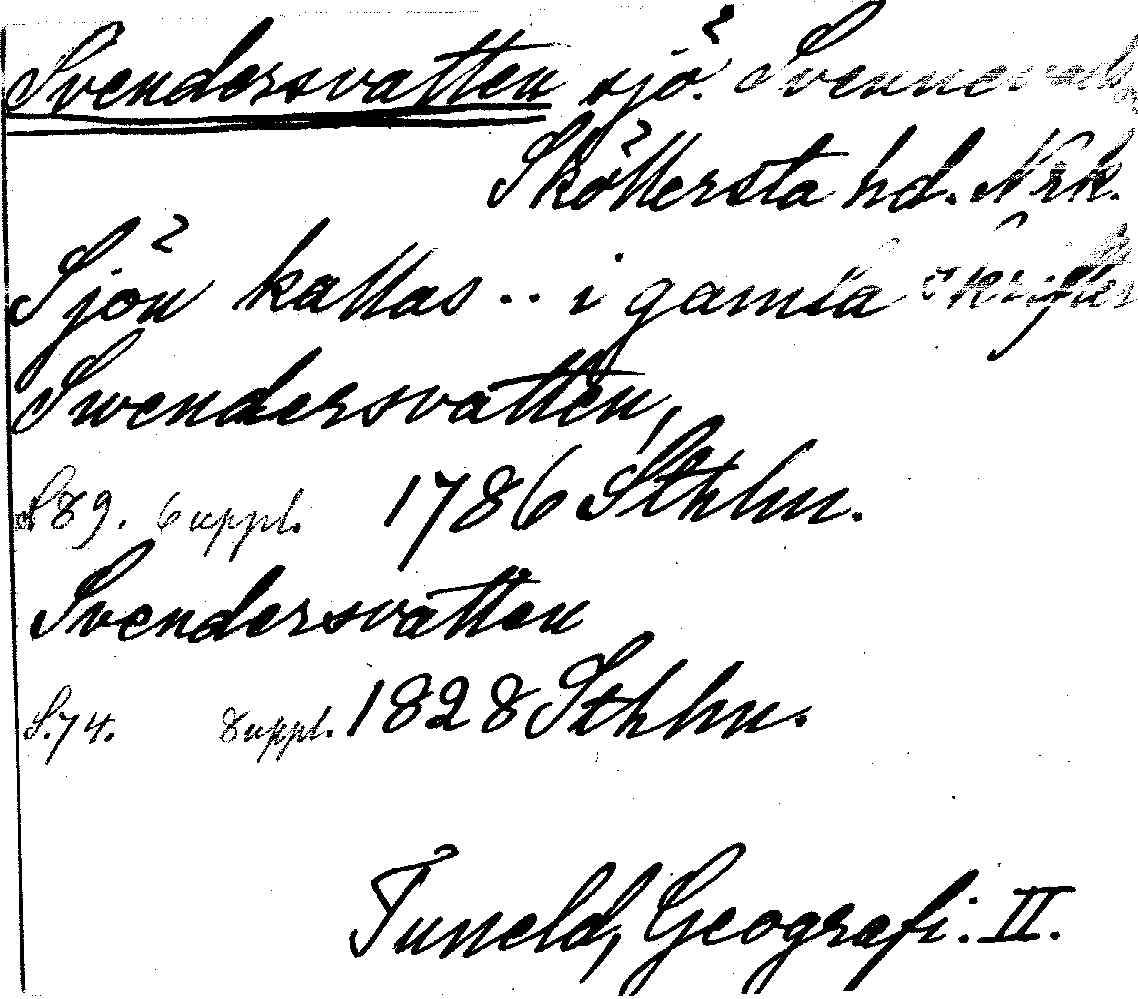 Svendersvatten sjö. Svennevads
Sköllersta hd. Nrk.
Sjön kallas .. i gamla skrifter
Swendersvatten,
S. 89. 6 uppl. 1786 Sthlm.
Svendersvatten
S. 74. 8 uppl. 1828 Sthlm.
Tuneld, Geografi. II.